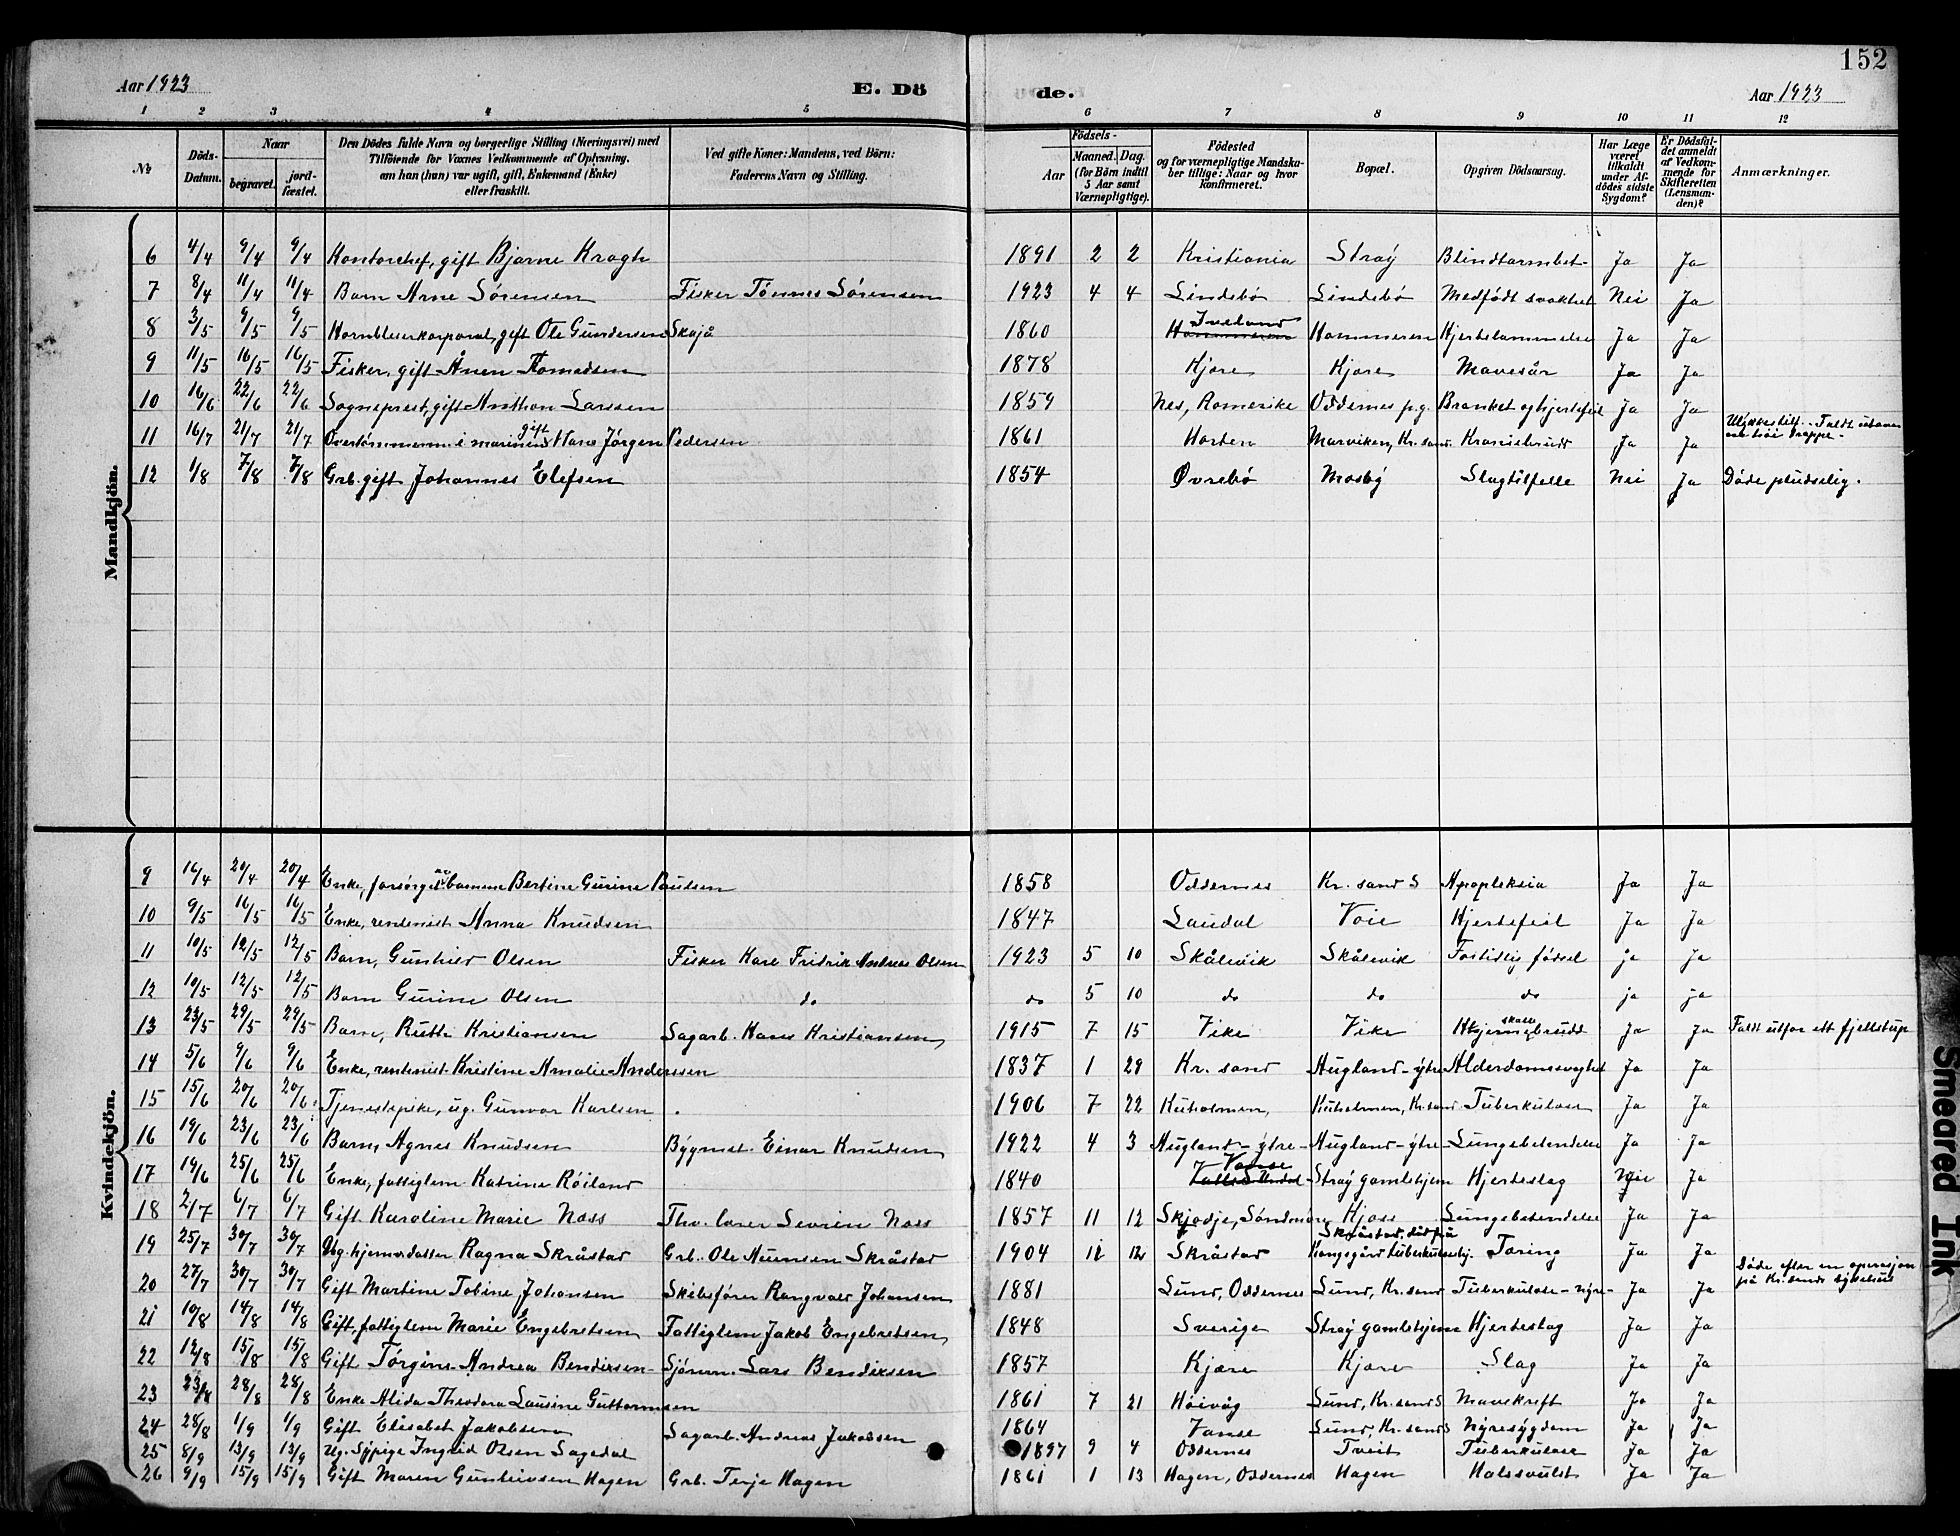 152
Aar 1923 E. Dö de. Aar 1923
1 2 3 4 5 6 7 8 9 10 11 12
No Döds-Datum. Naar begravet. jord-fæstet. Den Dödes fulde Navn og borgerlige Stilling (Næringsvei) med Tilföiende for Voxnes Vedkommende af Oplysning, om han (hun) var ugift, gift, Enkemand (Enke) eller fraskilt. Ved gifte Koner: Mandens, ved Börn: Faderens Navn og Stilling. Födsels- Aar Maaned. Dag. (for Börn indtil 5 Aar samt Værnepligtige). Födested og for værnepligtige Mandskaber tillige: Naar og hvor konfirmeret. Bopæl. Opgiven Dödsaarsag. Har Læge været tilkaldt under Afdödes sidste Sygdom? Er Dödsfaldet anmeldt af Vedkommende for Skifteretten (Lensmanden)? Anmærkninger.
Mandkjön.
6 4/4 9/4 9/4 Kontorchef, gift Bjarne Kragh 1891 2 2 Kristiania Strøy Blindtarmbet- Ja Ja
7 8/4 11/4 11/4 Barn Arne Sörensen Fisker Tönnes Sörensen 1923 4 4 Lindebö Lindebö Medfödt svakhet Nei Ja
8 3/5 9/5 9/5 Hornblæserkorporal, gift Ole Gundersen Skajå 1860 Iveland Hommeren Hommeren Hjertelammelse Ja Ja
9 11/5 16/5 16/5 Fisker, gift Ånen Tomassen 1878 Kjøre Kjøre Mavesår Ja Ja
10 16/6 22/6 22/6 Sogneprest, gift Anthon Larssen 1859 Nes, Romerike Oddernes p.g. Bronket og hjertefeil Ja Ja
11 16/7 21/7 21/7 Overtömmerm. i marinen gift Hans Jörgen Pedersen 1861 Horten Marviken, Kr.sand. Kraniebrudd Ja Ja Ulykkestilf. - Faldt utover en höi trappe.
12 1/8 7/8 7/8 Grb. gift Johannes Elefsen 1854 Øvrebö Mosby Slagtilfelle Nei Ja Döde pludselig.
Kvindekjön.
9 16/4 20/4 20/4 Enke, forsörget av barnene Bertine Gurine Paulsen 1858 Oddernes Kr. sand S Apopleksia Ja Ja
10 9/5 16/5 16/5 Enke, rentenist Anna Knudsen 1847 Laudal Voie Hjertefeil Ja Ja
11 10/5 12/5 12/5 Barn, Gunhild Olsen Fisker Karl Fridrik Andreas Olsen 1923 5 10 Skålevik Skålevik For tidlig födsel ja ja
12 10/5 12/5 12/5 Barn Gurine Olsen do do 5 10 do do do ja ja
13 23/5 29/5 29/5 Barn, Ruth Kristiansen Sagarb. Hans Kristiansen, 1915 7 15 Vike Vike Hjerneskalebrudd Ja Ja Faldt utfor ett fjellstup
14 5/6 9/6 9/6 Enke, rentenist Kristine Amalie Anderssen 1837 1 29 Kr. sand Augland - ytre Alderdomssvaghet Ja Ja
15 15/6 20/6 20/6 Tjenestepike, ug. Gunvor Karlsen 1906 7 22 Kuholmen, Kuholmen, Kr.sand. Tuberkulose Ja Ja
16 19/6 23/6 23/6 Barn, Agnes Knudsen Bygmst. Einar Knudsen, 1922 4 3 Augland - ytre- Augland - ytre- Lungebetendelse Ja Ja
17 19/6 25/6 25/6 Enke, fattiglem Katrine Röiland 1840 Vanse Strøy gamlehjem Hjerteslag Nei Ja
18 2/7 6/7 6/7 Gift Karoline Marie Noss Thv. lærer Sevrin Noss 1857 11 12 Skjodje, Söndmöre Kjoss Lungebetendelse Ja Ja
19 25/7 30/7 30/7 Ug. hjemv. datter Ragna Skråstad Grb. Ole Aunsen Skråstad 1904 12 12 Skråstad Skråstad, död på Kongsgård tuberkulosehj. Tæring Ja Ja
20 27/7 30/7 30/7 Gift Martine Tobine Johansen Skibsförer Rangvald Johansen 1881 Lund, Oddernes Lund, Kr.sand Tuberkulose - nyre- Ja Ja Döde efter en operasjon på Kr. sands sykehus
21 10/8 14/8 14/8 Gift, fattiglem Marie Engebretsen Fattiglem Jakob Engebretsen, 1848 Sverige Strøy gamlehjem Hjerteslag Ja Ja
22 12/8 15/8 15/8 Gift Törgine Andrea Bendiksen- Sjöm. Lars Bendiksen 1857 Kjøre Kjøre Slag Ja Ja
23 23/8 28/8 28/8 Enke Alida Theodora Lausine Guttormsen 1861 7 21 Höivåg Lund, Kr.sand S Mavekreft Ja Ja
24 28/8 1/9 1/9 Gift Elisabet Jakobsen Sagarb. Andreas Jakobsen 1864 Vanse Lund, Kr.sand S Nyresygdom Ja Ja
25 8/9 13/9 13/9 Ug. Sypige Ingrid Olsen Sagedal 1897 9 4 Oddernes Tveit Tuberkulose Ja Ja
26 9/9 15/9 15/9 Gift Maren Gunhivsen Hagen Grb. Terje Hagen 1861 1 13 Hagen, Oddernes Hagen Halssvulst Ja Ja
Smeared Ink